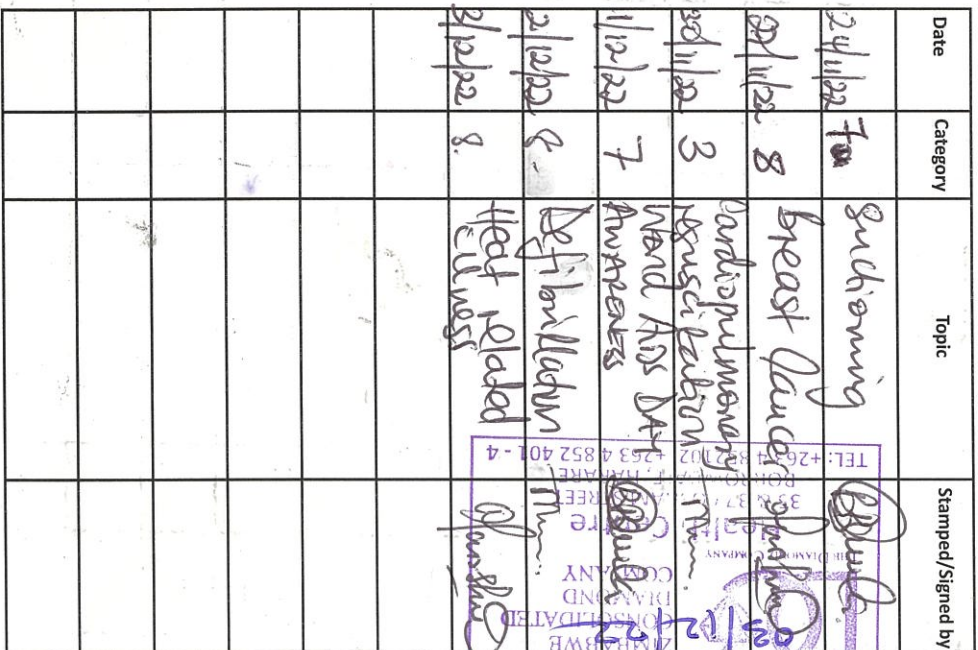 Date Category Topic Stamped/Signed by
24/11/22 7 Suctioning
8 Breast Cancer
30/11/22 3 Cardiopulmonary
resuscitation
1/12/22 7 World AIDS DAY
AWARENESS
2/12/22 8 - Defibrillation
3/12/22 8. Heat related
illness
THE DIAMOND COMPANY
ZIMBABWE
CONSOLIDATED
DIAMOND
COMPANY
Health Centre
TEL: +263 4 852102 +263 4 852 401 - 4
03/12/22